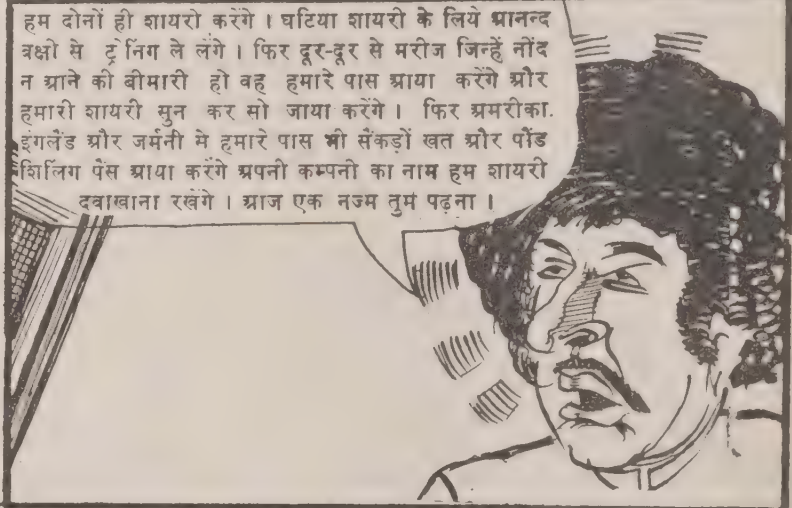 हम दोनों ही शायरी करेंगे । घटिया शायरी के लिये आनन्द
बक्षी से ट्रेनिंग ले लंगे । फिर दूर-दूर से मरीज जिन्हें नींद
न आने की बीमारी हो वह हमारे पास आया करेंगे और
हमारी शायरी सुन कर सो जाया करेंगे । फिर अमरीका.
इंगलैंड और जर्मनी मे हमारे पास भी सैंकड़ों खत और पौंड
शिलिंग पेंस आया करेंगे अपनी कम्पनी का नाम हम शायरी
दवाखाना रखेंगे । आज एक नज्म तुम पढ़ना ।